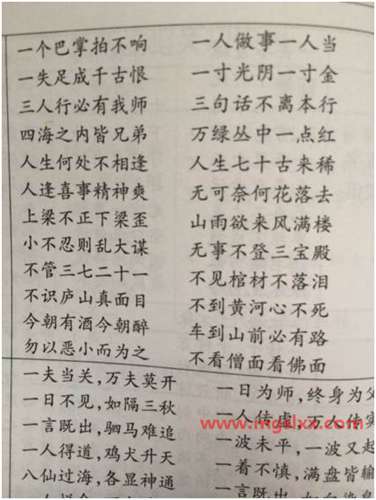 一个巴掌拍不响
一失足成千古恨
三人行必有我师
四海之内皆兄弟
人生何处不相逢
人逢喜事精神爽
上梁不正下梁歪
小不忍则乱大谋
不管三七二十一
不识庐山真面目
今朝有酒今朝醉
勿以恶小而为之
一人做事一人当
一寸光阴一寸金
三句话不离本行
万绿丛中一点红
人生七十古来稀
无可奈何花落去
山雨欲来风满楼
无事不登三宝殿
不见棺材不落泪
不到黄河心不死
车到山前必有路
不看僧面看佛面
一夫当关,万夫莫开
一日不见,如隔三秋
一言既出,驷马难追
一人得道,鸡犬升天
八仙过海,各显神通
一日为师,终身为父
一人传虚,万人传实
一波未平,一波又起
一着不慎,满盘皆输
一言既出
www.mgslxx.com